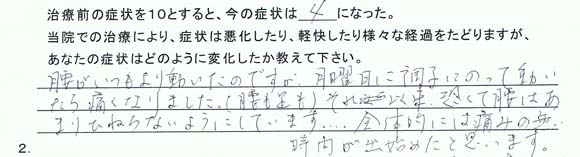 治療前の症状を10とすると、今の症状は 4 になった。
当院での治療により、症状は悪化したり、軽快したり様々な経過をたどりますが、
あなたの症状はどのように変化したか教えて下さい。
腰がいつもより動いたのですが、月曜日に調子にのって動い
たら痛くなりました。(腰も足も) それ以来、恐くて腰はあ
まりひねらないようにしています.... 全体的には痛みの無い
2. 時間が出始めたと思います。